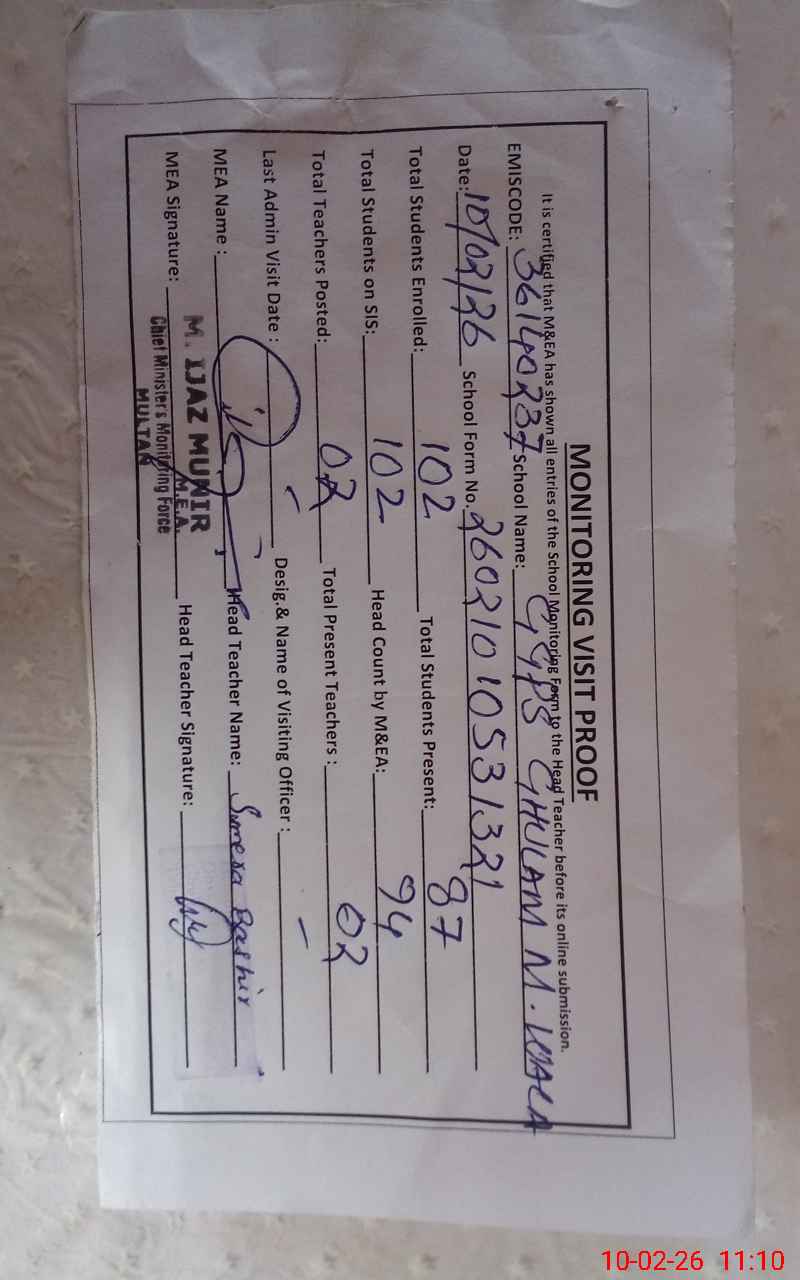 MONITORING VISIT PROOF
It is certified that M&EA has shown all entries of the School Monitoring Form to the Head Teacher before its online submission.
EMISCODE: 36140237 School Name: GGPS GHULAM M. WALA
Date: 10/02/26 School Form No. 26021010531321
Total Students Enrolled: 102 Total Students Present: 87
Total Students on SIS: 102 Head Count by M&EA: 94
Total Teachers Posted: 02 Total Present Teachers : 02
Last Admin Visit Date : - Desig.& Name of Visiting Officer : -
MEA Name : Head Teacher Name: Sumera Bashir
MEA Signature: Head Teacher Signature:
M. IJAZ MUNIR
M.E.A.
Chief Minister's Monitoring Force
MULTAN
10-02-26 11:10